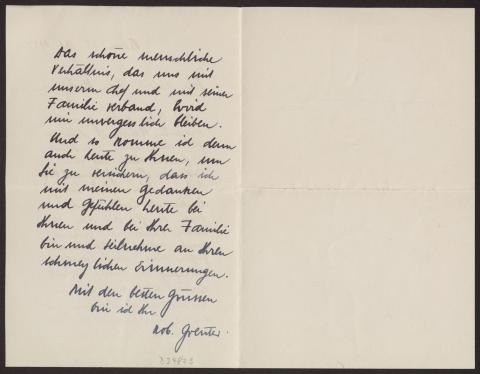 Das schöne menschliche
Verhältnis, das uns mit
unserm Chef und mit seiner
Familie verband, wird
mir unvergesslich bleiben.
Und so komme ich denn
auch heute zu Ihnen, um
Sie zu versichern, dass ich
mit meinen Gedanken
und Gefühlen heute bei
Ihnen und bei Ihrer Familie
bin und teilnehme an Ihren
schmerzlichen Erinnerungen.
Mit den besten Grüssen
bin ich Ihr
Rob.